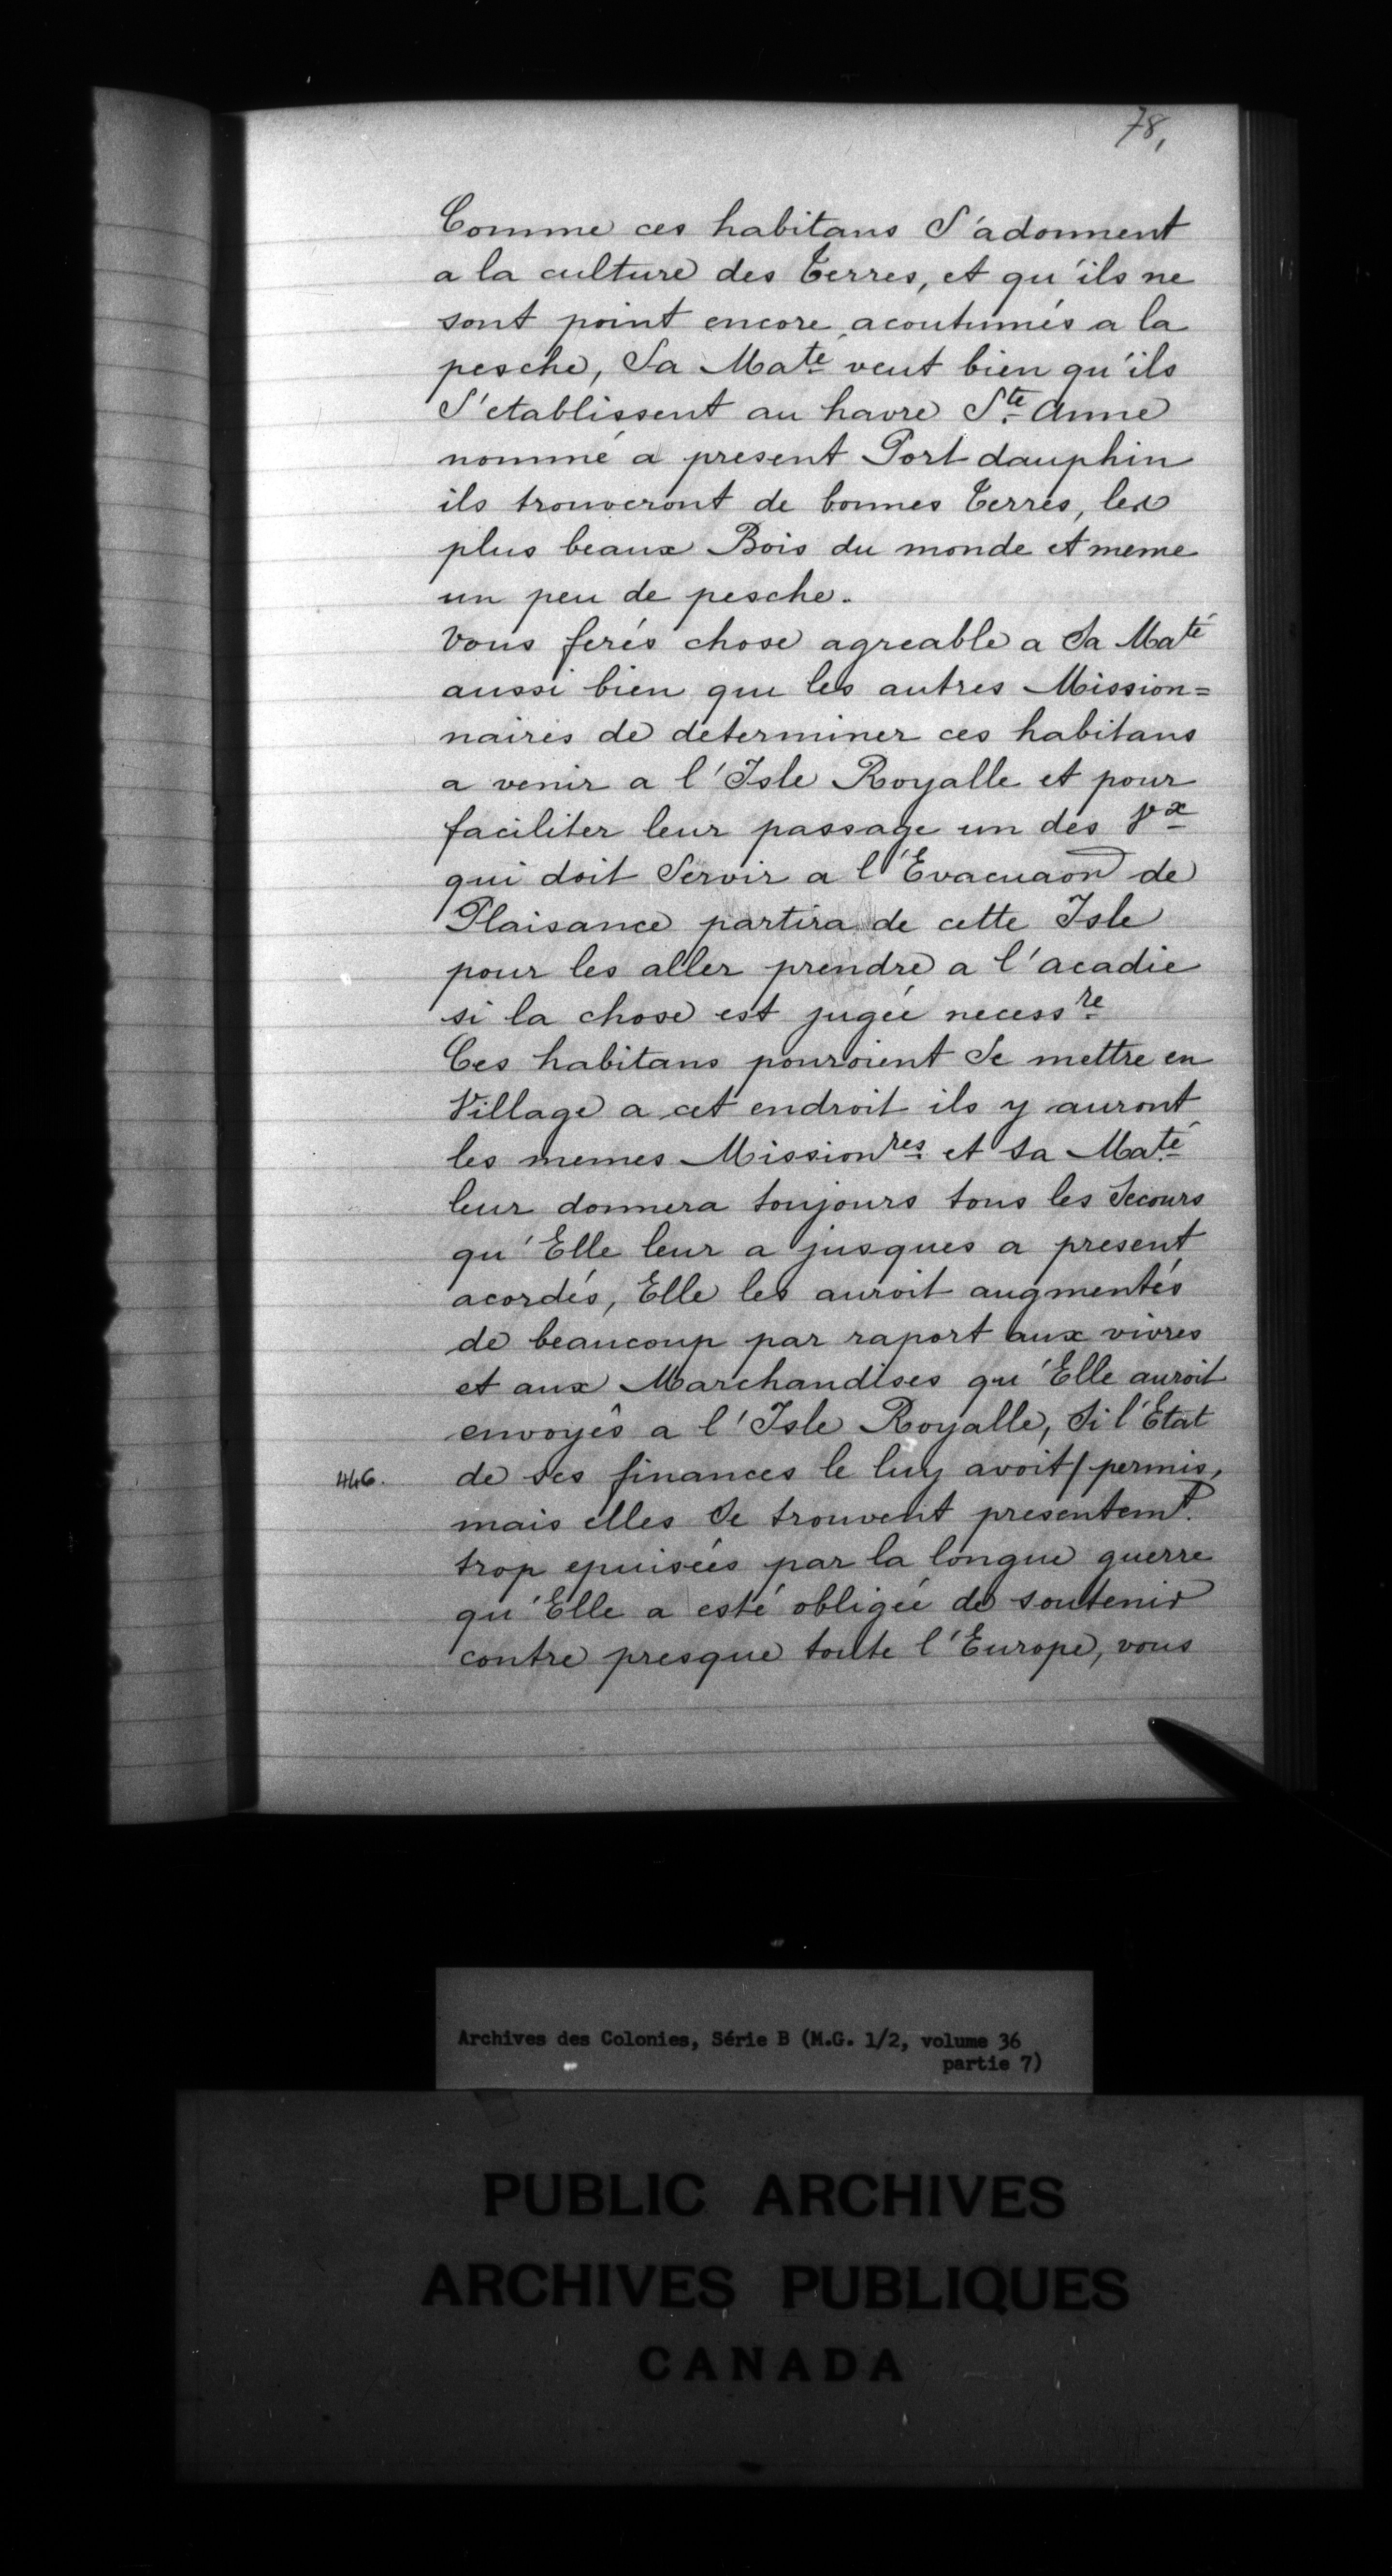 78,
Comme ces habitans S'adonnent
a la culture des Terres, et qu'ils ne
sont point encore acoutumés a la
pesche, Sa Maté veut bien qu'ils
S'etablissent au havre Ste Anne
nommé a present Port dauphin
ils trouveront de bonnes Terres, les
plus beaux Bois du monde et meme
un peu de pesche.
Vous ferés chose agreable a Sa Maté
aussi bien que les autres Mission=
naires de determiner ces habitans
a venir a l'Isle Royalle et pour
faciliter leur passage un des Vx
qui doit Servir a l'Evacuaon de
Plaisance partira de cette Isle
pour les aller prendre a l'acadie
si la chose est jugée necessre
Ces habitans pouroient Se mettre en
Village a cet endroit ils y auront
les memes Missionres et sa Maté
leur donnera toujours tous les Secours
qu'Elle leur a jusques a present
acordés, Elle les auroit augmentés
de beaucoup par raport aux vivres
et aux Marchandises qu'Elle auroit
envoyés a l'Isle Royalle, Si l'Etat
446. de ses finances le luy avoit/permis,
mais elles Se trouvent presentemt.
trop epuisées par la longue guerre
qu'Elle a esté obligée de soutenir
contre presque toute l'Europe, vous
Archives des Colonies, Série B (M.G. 1/2, volume 36
partie 7)
PUBLIC ARCHIVES
ARCHIVES PUBLIQUES
CANADA